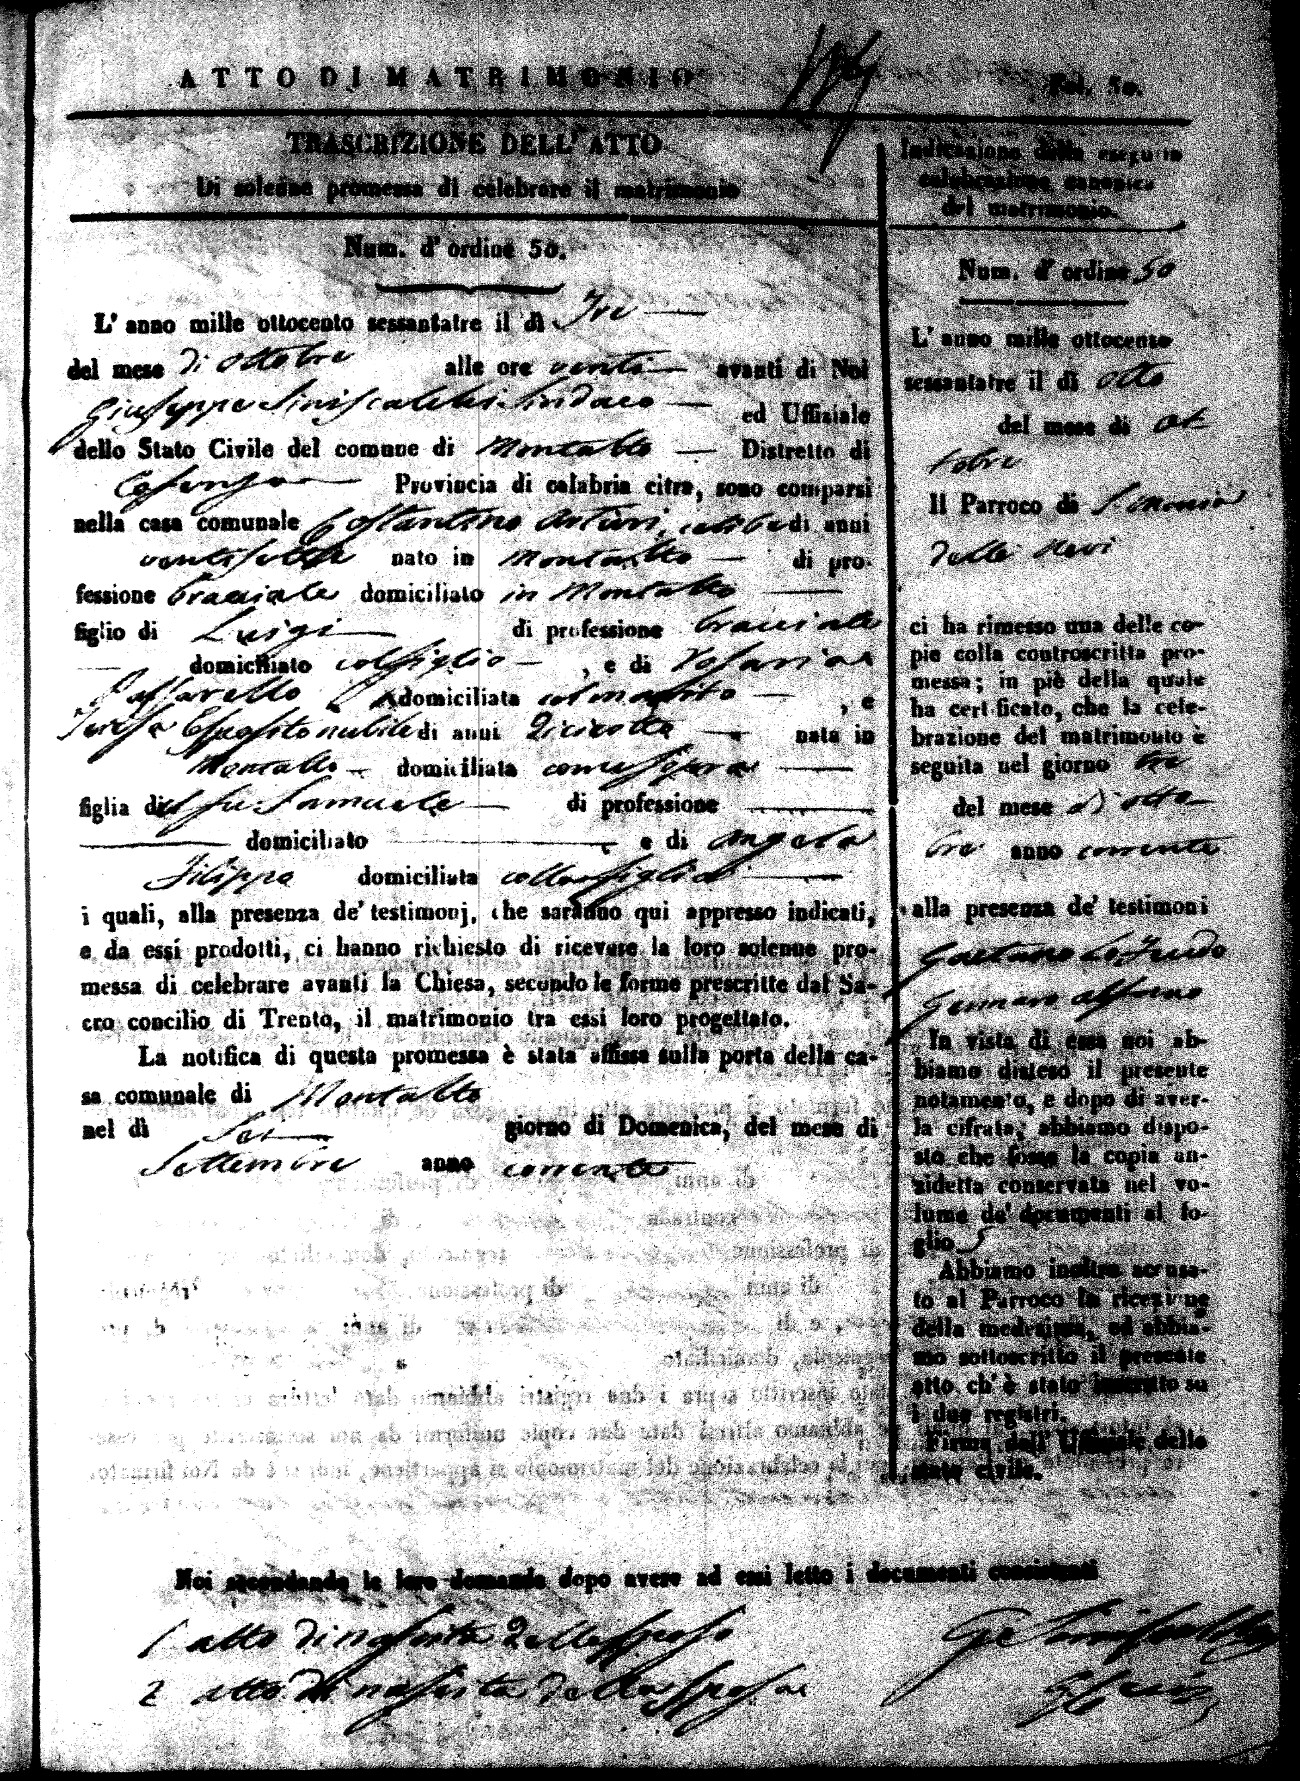 ATTO DI MATRIMONIO
Fol. 50.
TRASCRIZIONE DELL' ATTO
Di solenne promessa di celebrare il matrimonio
Num. d' ordine 50.
L' anno mille ottocento sessantatre il dì Tre
del mese di ottobre alle ore venti avanti di Noi
Giuseppe Siniscalchi Sindaco ed Uffiziale
dello Stato Civile del comune di Montalto Distretto di
Cosenza Provincia di calabria citra, sono comparsi
nella casa comunale Costantino Artieri, celibe di anni
nato in Montalto di pro-
fessione bracciale domiciliato in Montalto
figlio di Luigi di professione bracciale
domiciliato col figlio , e di Rosaria
domiciliata col marito , e
Teresa Esposito nubile di anni diciotto nata in
Montalto domiciliata come sopra
figlia del fu Samuele di professione
domiciliato e di Angela
Filippo domiciliata colla figlia
i quali, alla presenza de' testimonj, che saranno qui appresso indicati,
e da essi prodotti, ci hanno richiesto di ricevere la loro solenne pro-
messa di celebrare avanti la Chiesa, secondo le forme prescritte dal Sa-
cro concilio di Trento, il matrimonio tra essi loro progettato.
La notifica di questa promessa è stata affissa sulla porta della ca-
sa comunale di Montalto
nel dì Sei giorno di Domenica, del mese di
Settembre anno corrente
Indicazione della eseguita
celebrazione canonica
del matrimonio.
Num. d' ordine 50
L' anno mille ottocento
sessantatre il dì otto
del mese di ot
tobre
Il Parroco di S. Maria
delle Nevi
ci ha rimesso una delle co-
pie colla controscritta pro-
messa; in piè della quale
ha certificato, che la cele-
brazione del matrimonio è
seguita nel giorno tre
del mese di otto
bre anno corrente
alla presenza de' testimoni
Gaetano
Gennaro
In vista di essa noi ab-
biamo disteso il presente
notamento, e dopo di aver-
la cifrata, abbiamo dispo-
sto che fosse la copia an-
zidetta conservata nel vo-
lume de' documenti al fo-
glio 5
Abbiamo inoltre accusa-
to al Parroco la ricezione
della medesima, ed abbia-
mo sottoscritto il presente
atto ch' è stato inscritto su
i due registri.
Firma dell' Uffiziale dello
stato civile.
Noi secondando le loro domande dopo avere ad essi letto i documenti consistenti
1 atto di nascita dello sposo
2 atto di nascita della sposa
Ge Siniscalchi